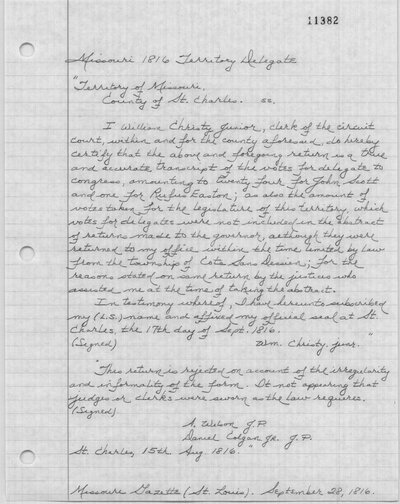 11382
Missouri 1816 Territory Delegate
"Territory of Missouri.
County of St. Charles. ss.
I William Christy Junior, clerk of the circuit
court, within and for the county aforesaid, do hereby
certify that the above and foregoing return is a true
and accurate transcript of the votes for delegate to
congress, amounting to twenty four for John Scott
and one for Rufus Easton; as also the amount of
votes taken for the legislature of this territory which
votes for delegates were not included in the abstract
of return made to the governor, although they were
returned to my office within the time limited by law
from the township of Cote Sans Dessein; for the
reasons stated on same return by the justices who
assisted me at the time of taking the abstract.
In testimony whereof, I have hereunto subscribed
my (L.S.) name and affixed my official seal at St.
Charles, the 17th day of Sept. 1816.
(Signed) Wm. Christy, junr. "
"This return is rejected on account of the irregularity
and informality of the form. It not appearing that
judges or clerks were sworn as the law requires.
(Signed)
A. Wilson J.P.
Daniel Colgan Jr. J.P.
St. Charles, 15th Aug. 1816. "
Missouri Gazette (St. Louis). September 28, 1816.